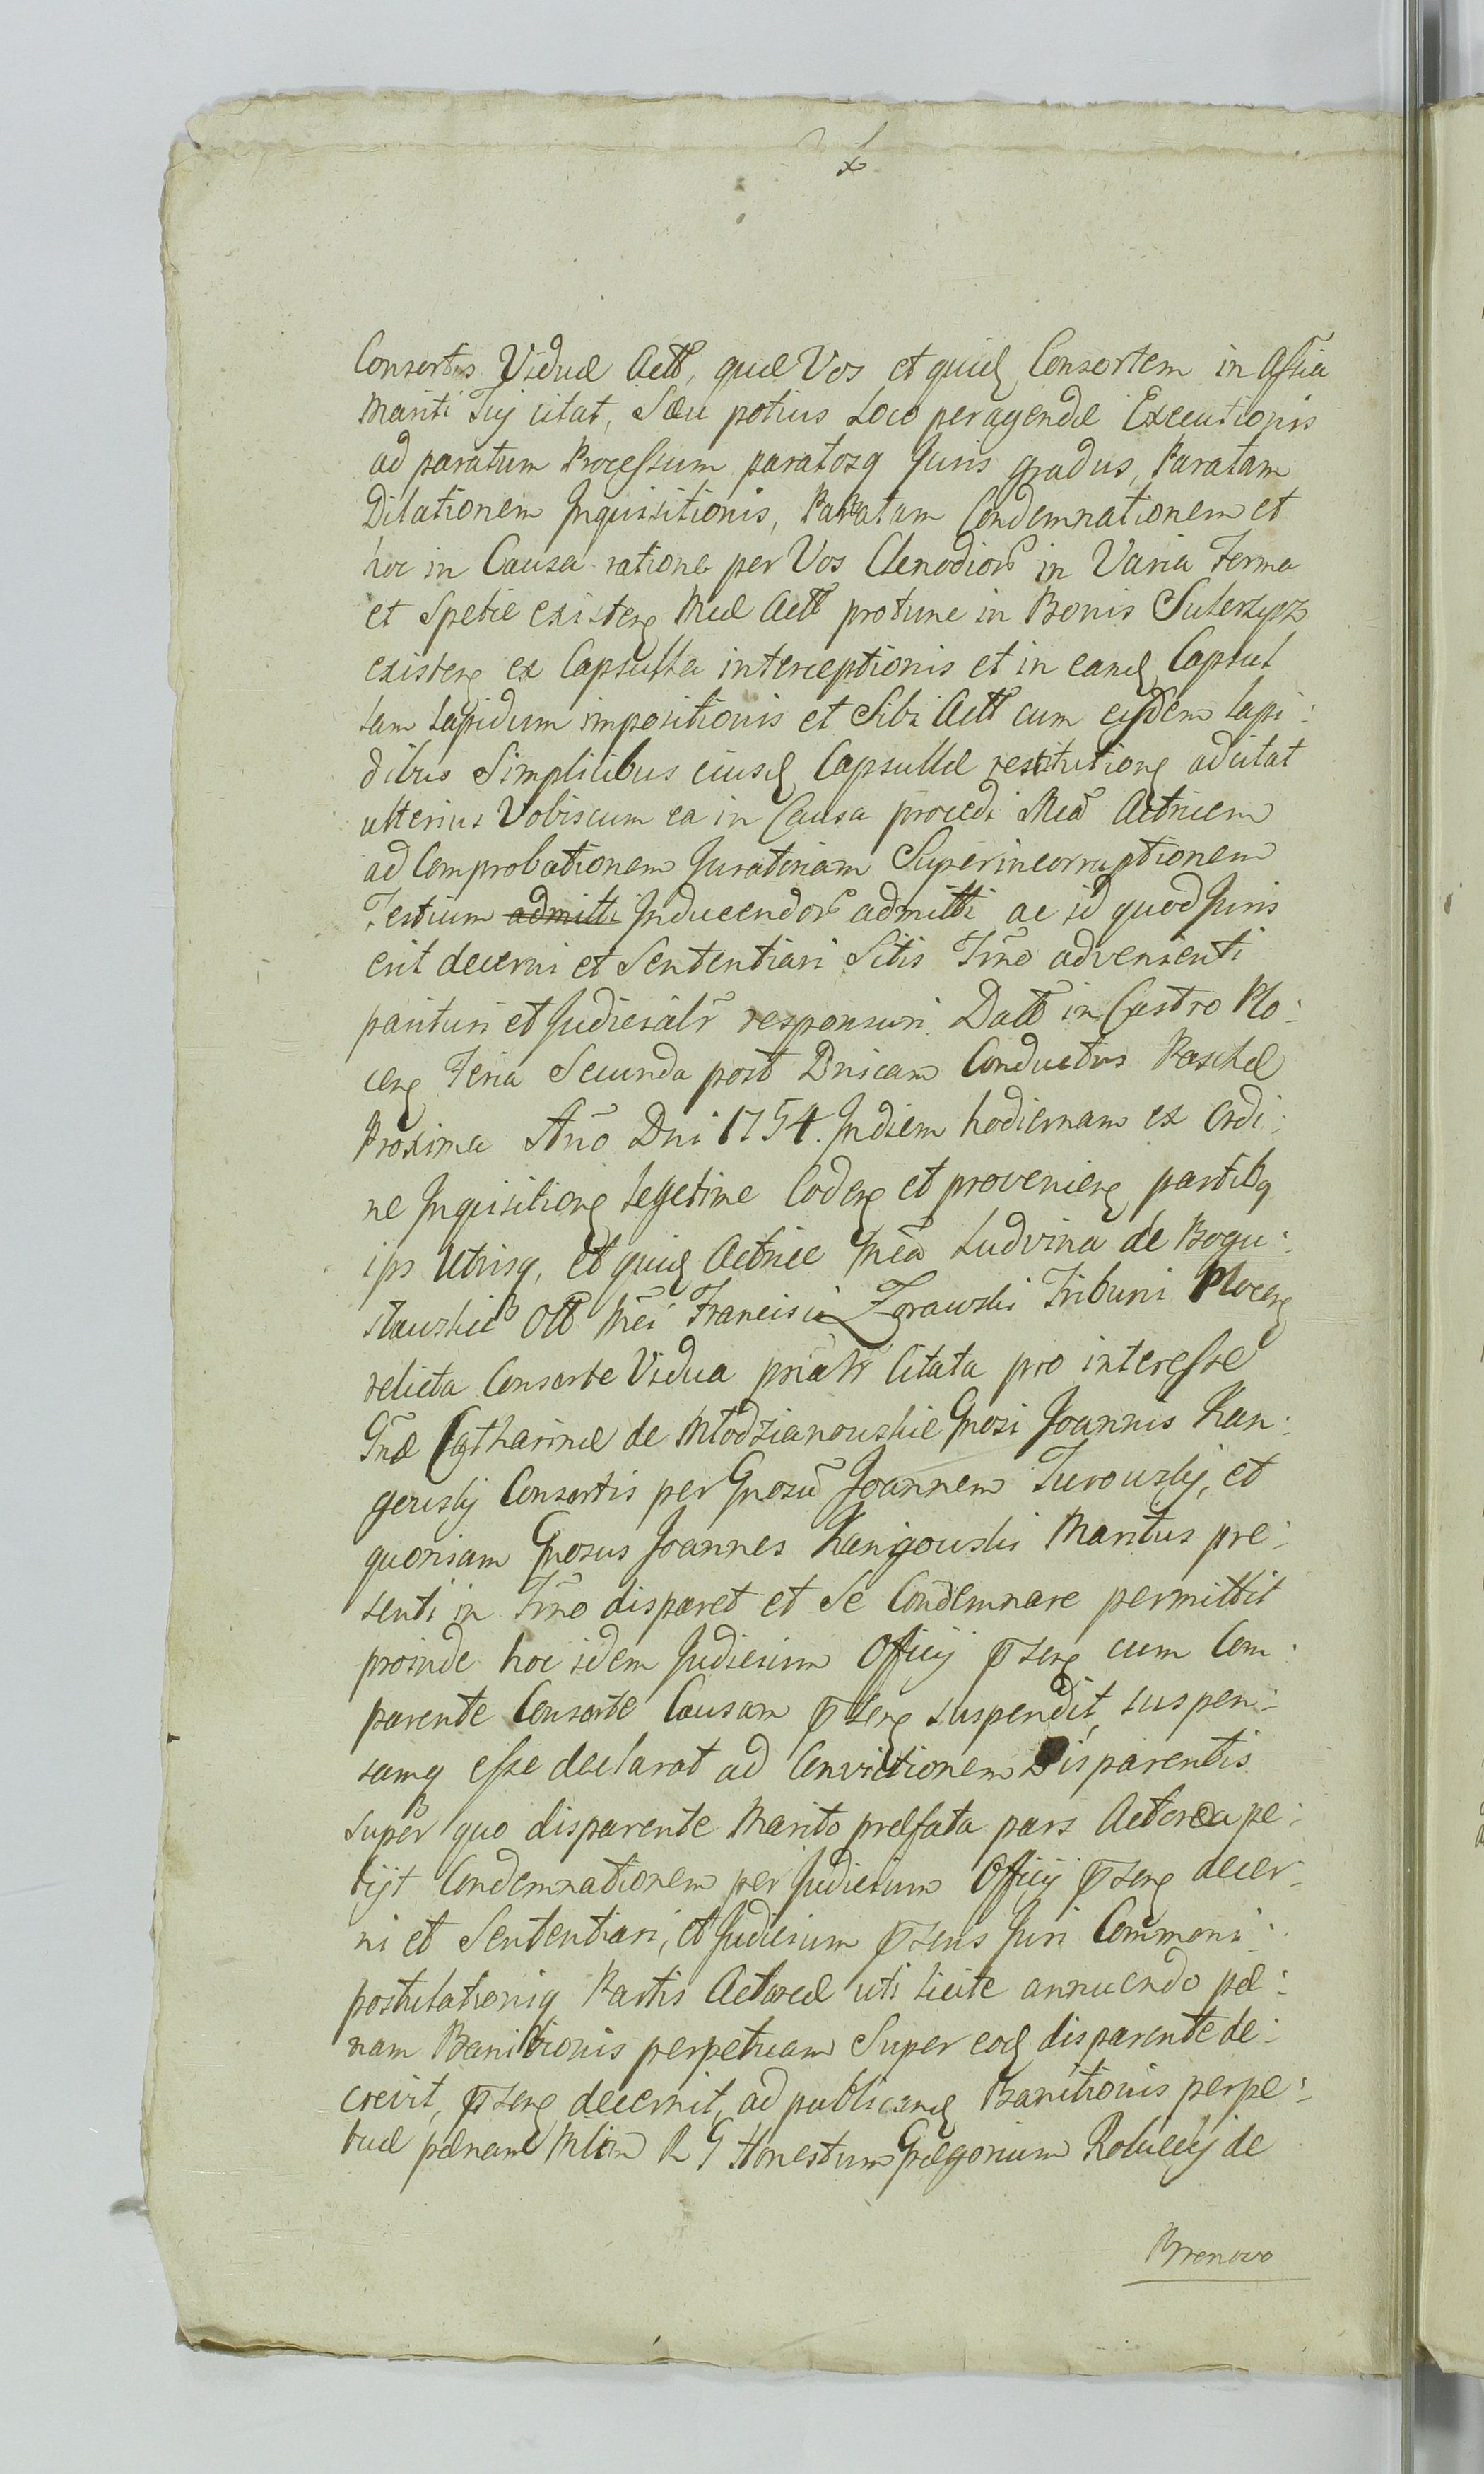 Consortis Viduæ Actt, quæ Vos et quidę Consortem in Assia
Mariti Tuj citat, Sæu potius Loco peragendæ Executionis
ad paratum Processum paratosq Juris gradus, Paratam
Dilationem Inquisitionis, Paratam Condemnationem et
hoc in Causa ratione per Vos Clenodior in Varia Forma
et Spetie existenę Meæ Actt protunc in Bonis
existenę ex Capsulla interceptionis et in eandę Capsul
lam Lapidum impositionis et Sibi Actt cum eisdem lapi:
dibus Simplicibus eiusdę Capsullæ restitutionę adcitat
ulterius Vobiscum ea in Causa procedi Mea Actricem
ad Comprobationem Juratoriam Superincorruptionem
Testium admitti Inducendor admitti ac id quod Juris
erit decerni et Sententiari Sitis Trno advenienti
parituri et Judicialr responsuri Datt in Castro Plo:
cenę Feria Secunda post Dnicam Conductus Paschæ
Proxima Año Dni 1754. Indiem hodiernam ex Ordi:
ne Inquisitionę Legetime Cadenę et provenienę partibq
ips Utrisq, et quidę Actrice Mca Ludvina de Bogu:
Olt Mci Francisci Zorawski Tribuni Plocenę
relicta Consorte Vidua prialr Citata pro interesse
Gnæ Catharinæ de Młodzianowskie Gnosi Joannis Kan:
gowskj Consortis per Gnosu Joannem Turowskj, et
quoniam Gnosus Joannes Kanigowski Maritus pre:
senti in Trno disparet et Se Condemnare permittit
proinde hoc idem Judicium Officij pszenę cum Com:
parente Consorte Causam pszenę suspendit, suspen:
samq esse declarat ad Convictionem Disparentis
super quo disparente Marito præfata pars Actorea pe:
tijt Condemnationem per Judicium Officij pszenę decer:
ni et Sententiari, et Judicium pszens Juri Commoni:
postulationiq Partis Actoreæ uti licite annuendo pæ:
nam Banitionis perpetuam Super eodę disparente de:
crevit, pszenę decernit, ad publicandę Banitionis perpe:
tuæ pænam Mlem R G Honestum Grægorium Robiecij de